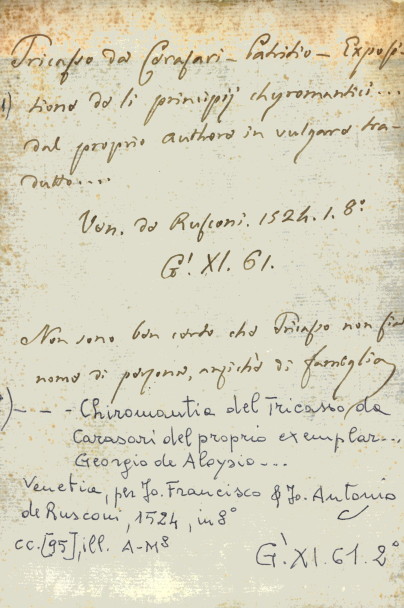 Tricasso da Cerasari - Patritio - Exposi
1) tione de li principij chyromantici...
dal proprio authore in vulgare tra-
dutto....
Ven. de Rusconi. 1524. 1. 8°
G'. XI. 61.
Non sono ben certo che Tricasso non sia
nome di persona, anzichè di famiglia
*) - - - Chiromantia del Tricasso, da
Carasari del proprio exemplar...
Georgio de Aloysio...
Venetia, per Jo. Francisco & Jo. Antonio
de Rusconi, 1524, in 8°
cc. [95], ill. A-M8
G'. XI. 61. 2°